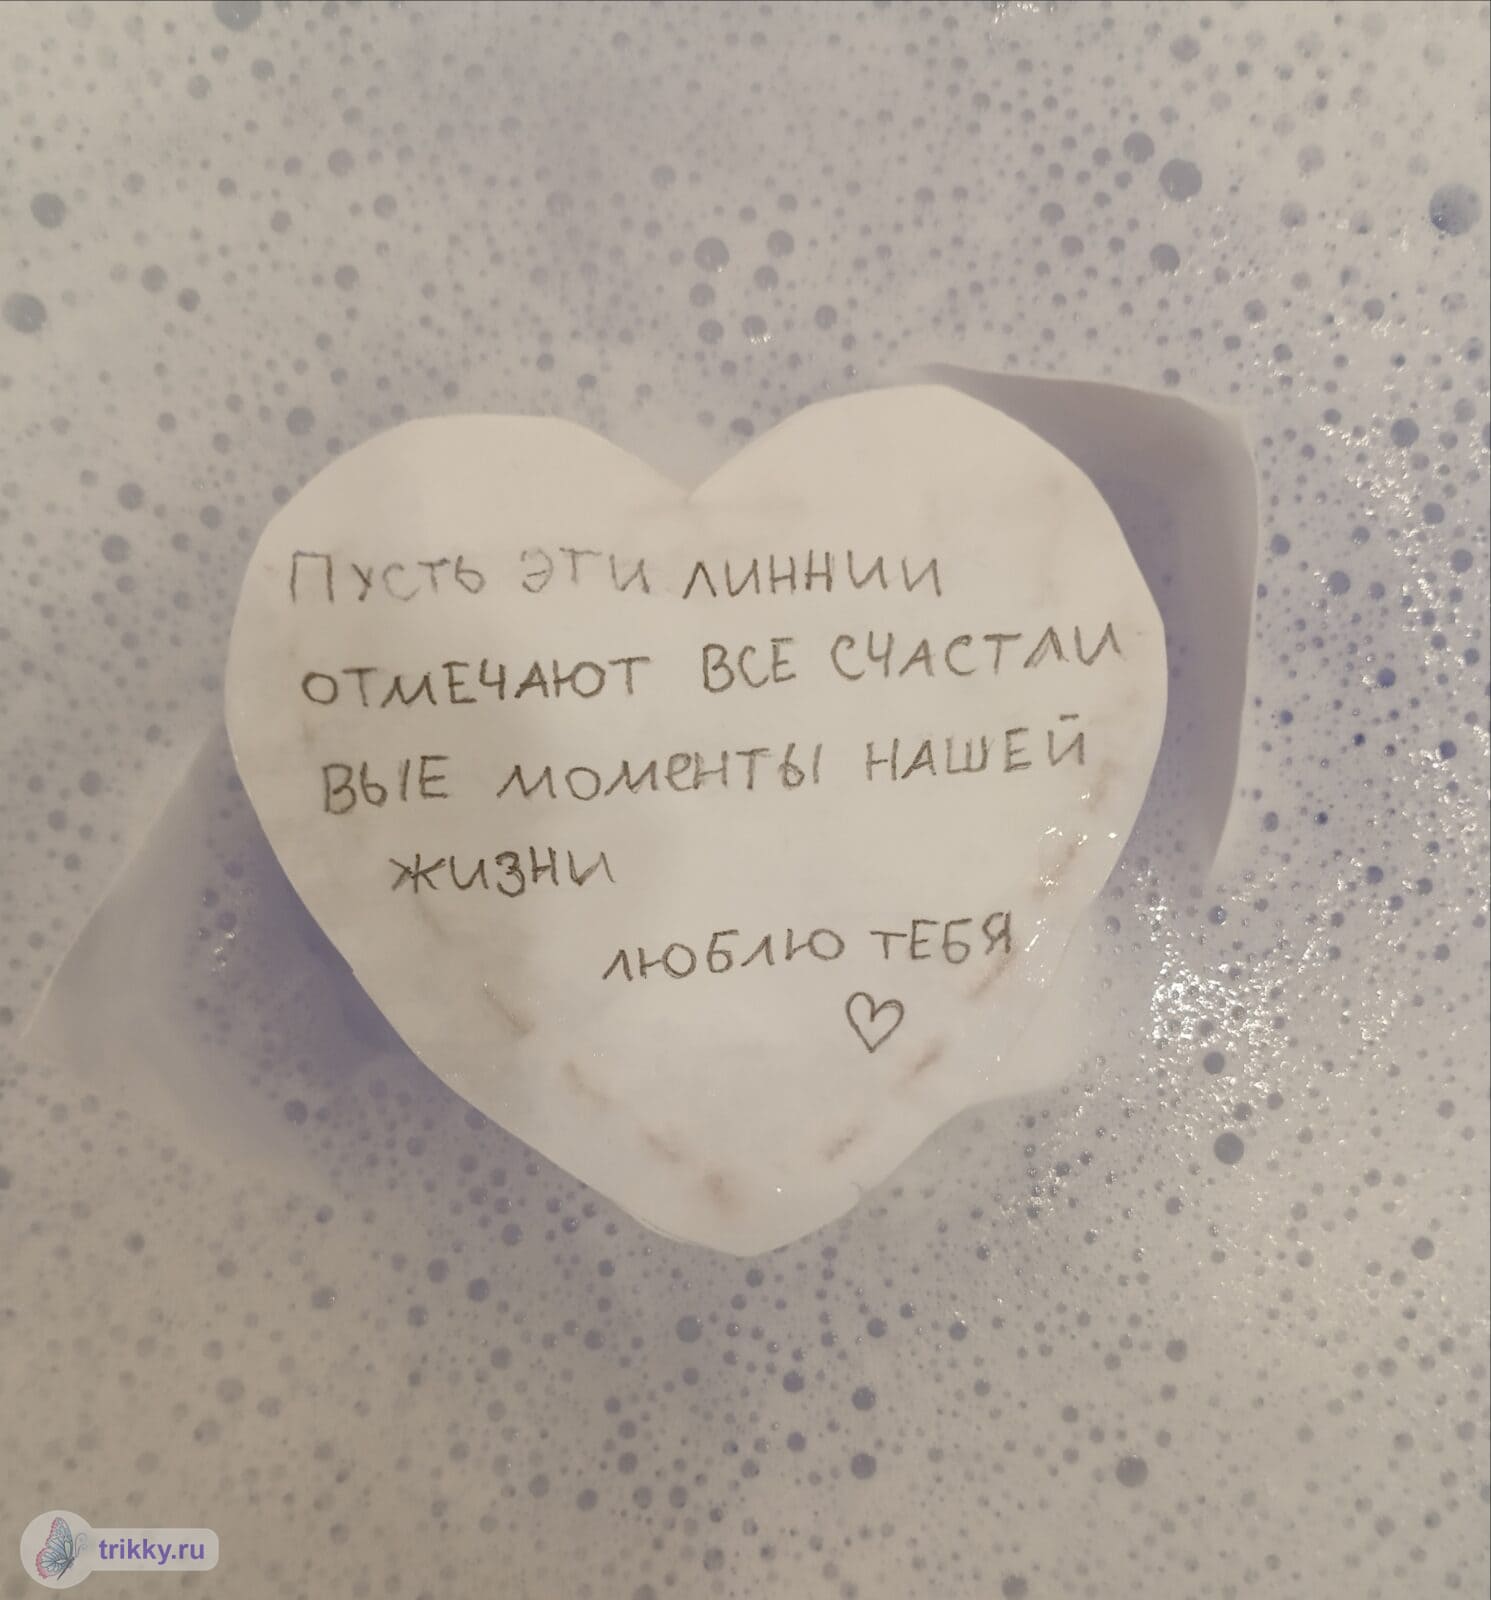 Пусть эти линнии
отмечают все счастли
вые моменты нашей
жизни
люблю тебя
trikky.ru